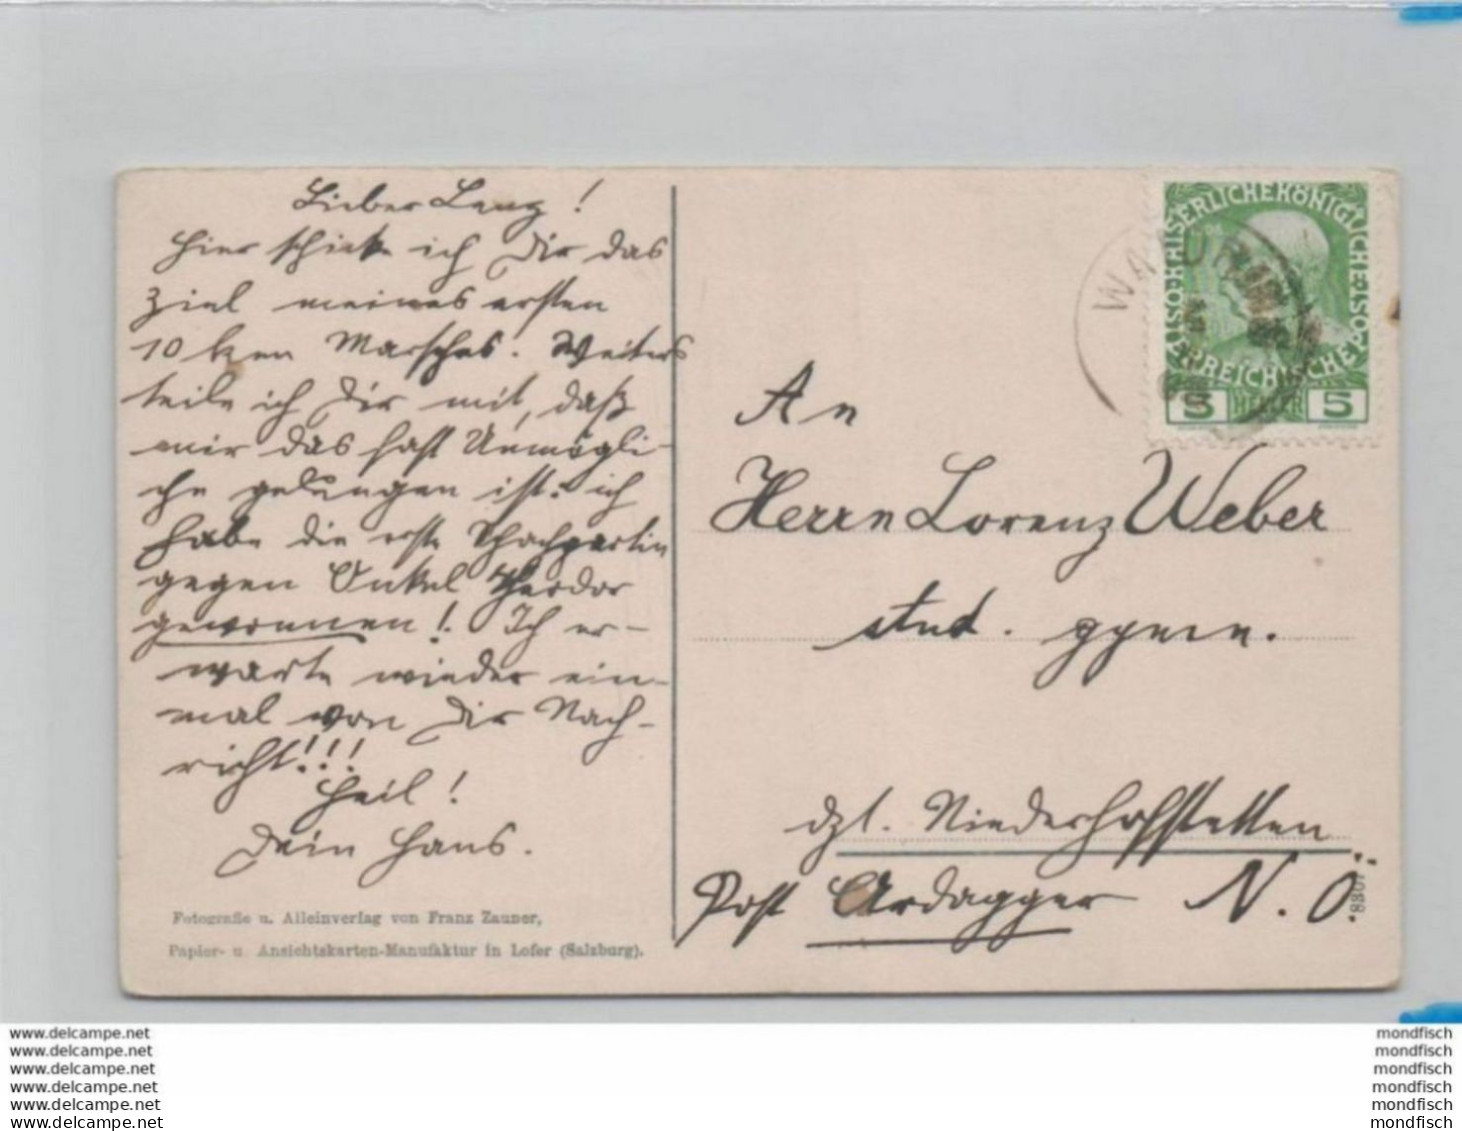 Lieber Lenz!
Hier schicke ich Dir das
Ziel meines ersten
10 km Marsches. Weiters
teile ich Dir mit, daß
mir das fast Unmögli-
che gelungen ist: ich
habe die erste Schachpartie
gegen Onkel Theodor
gewonnen! Ich er-
warte wieder ein-
mal von Dir Nach-
richt!!!
Heil!
Dein Hans.
Fotografie u. Alleinverlag von Franz Zauner,
Papier- u. Ansichtskarten-Manufaktur in Lofer (Salzburg).
KAISERLICHEKÖNIGLICHE ÖSTERREICHISCHE POST
5 HELLER 5
An
Herrn Lorenz Weber
stud.
dzt. Niederhofstetten
Post Ardagger N. Ö.
8807
www.delcampe.net
www.delcampe.net
www.delcampe.net
www.delcampe.net
www.delcampe.net
www.delcampe.net
mondfisch
mondfisch
mondfisch
mondfisch
mondfisch
mondfisch